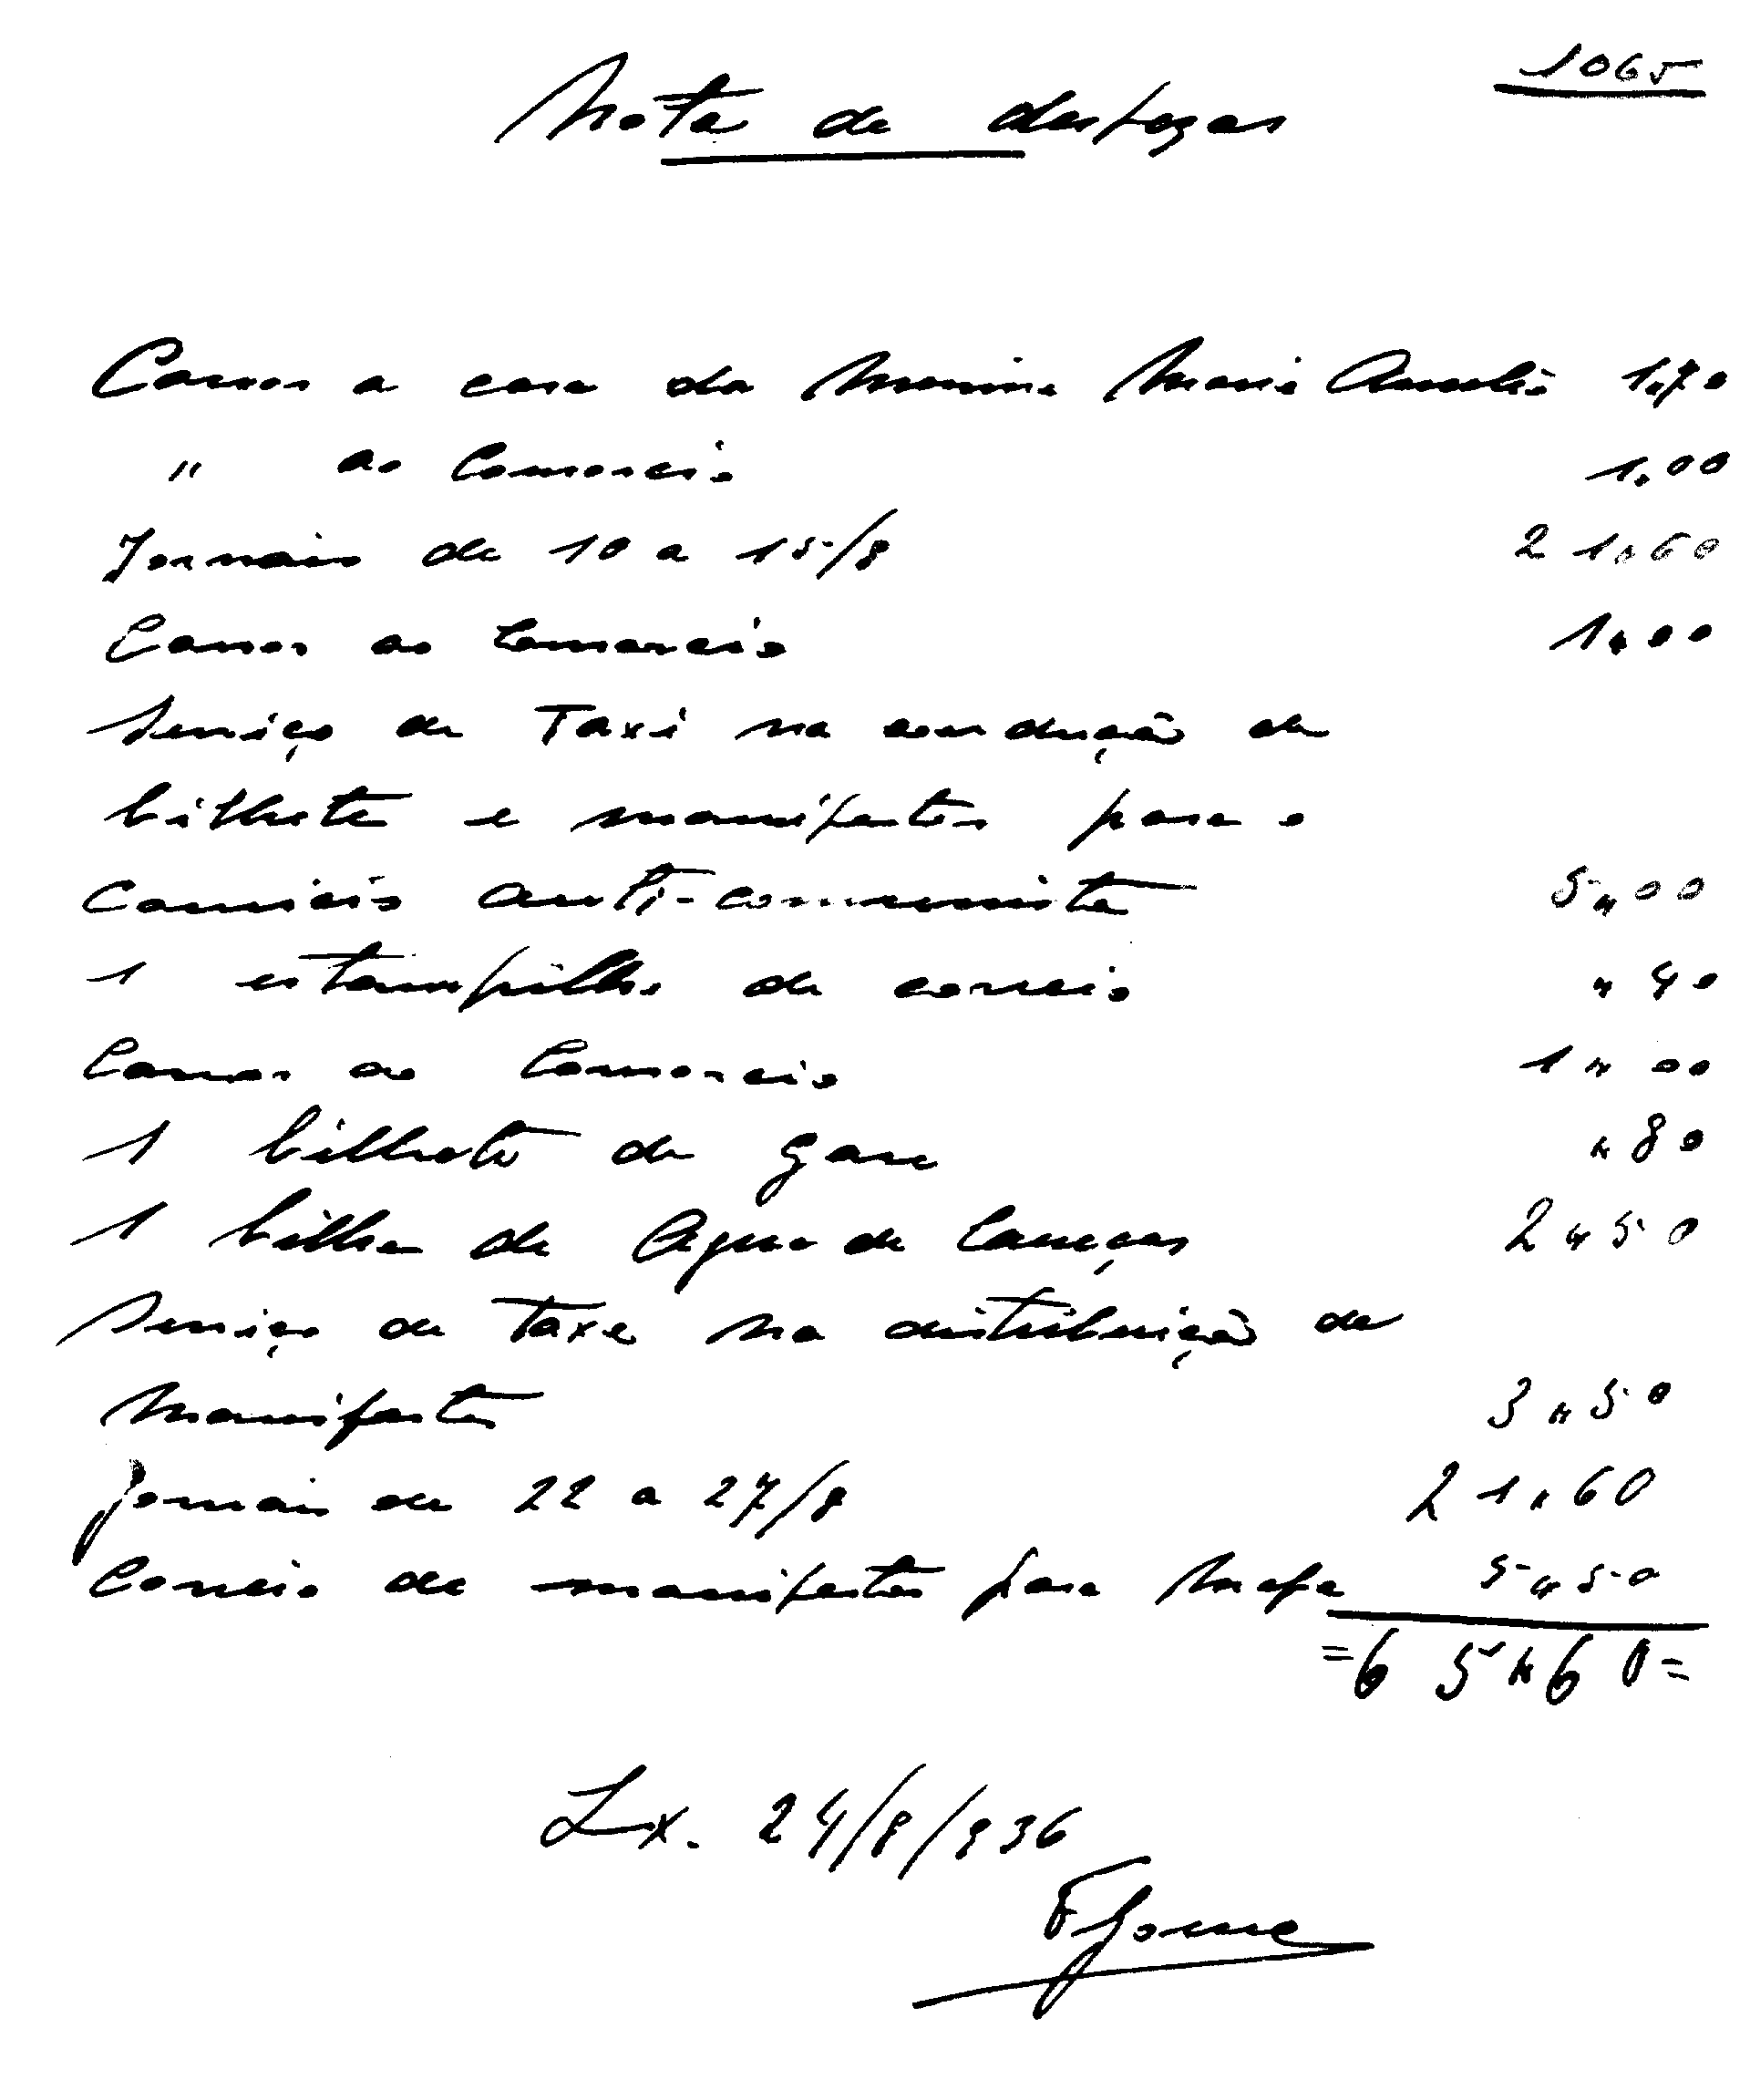 1065
Nota de despezas
Carros a casa da Menina Maria Amelia 1,70
" ao Comercio 1,00
Jornais de 10 a 15/8 21,60
Carros ao Comercio 1,00
Serviço de Taxi na condução de
bilhete e manifestos para o
Comicio anti-comunista 5,,00
1 estampilha de correio ,,40
Carros ao Comercio 1,,00
1 bilhete de gare ,,80
1 bilha de Agua de Caneças 2,,50
Serviço de Taxe na distribuição de
Manifestos 3,,50
Jornais de 22 a 27/8 21,,60
Correio de manifestos para Mafra 5,,50
=65,,60=
Lx. 24/8/936
F Gome